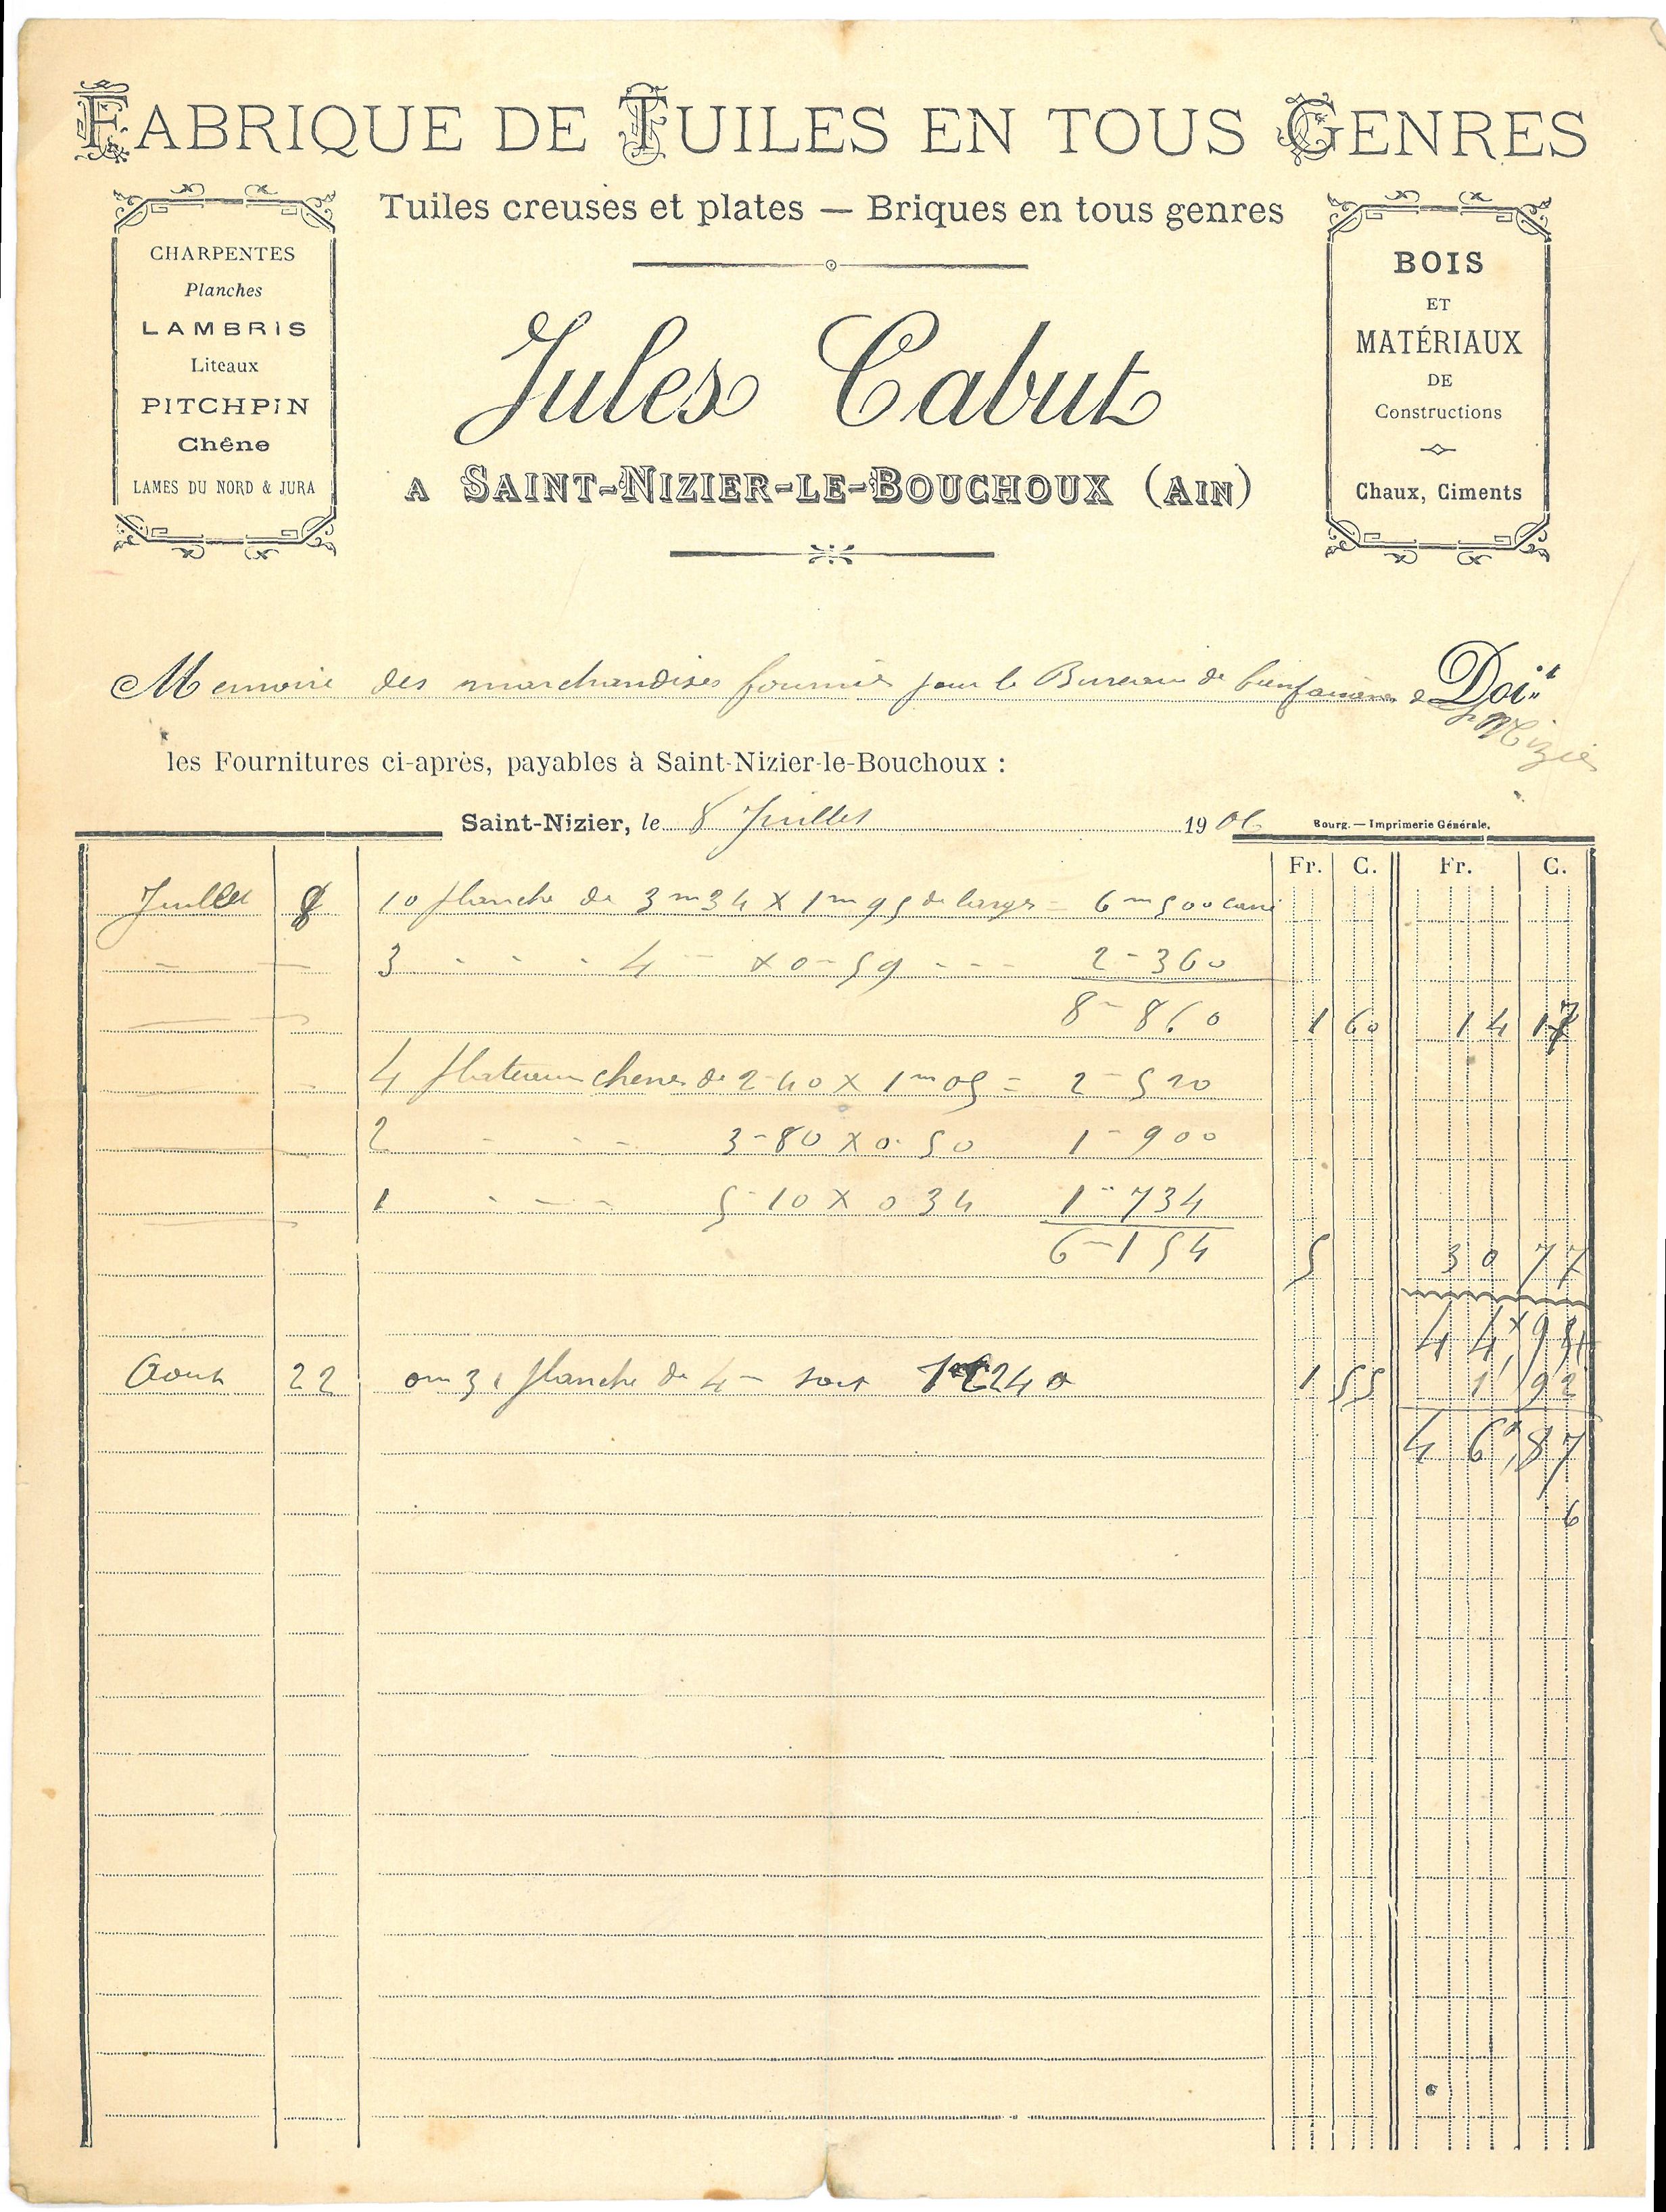 FABRIQUE DE TUILES EN TOUS GENRES
Tuiles creuses et plates — Briques en tous genres
CHARPENTES
Planches
LAMBRIS
Liteaux
PITCHPIN
Chêne
LAMES DU NORD & JURA
Jules Cabut
A SAINT-NIZIER-LE-BOUCHOUX (AIN)
BOIS
ET
MATÉRIAUX
DE
Constructions
Chaux, Ciments
Memoire des marchandises fournies pour le Bureau de bienfaisance de Doit
St Nizier
les Fournitures ci-après, payables à Saint-Nizier-le-Bouchoux :
Saint-Nizier, le 8 Juillet 1906
Bourg. — Imprimerie Générale.
Fr. C. Fr. C.
Juillet 8 10 planche de 3m34 X 1m95 de large = 6m500 carré
3 - - - 4 - X 0-59 - - - 2-360
8-860 1 60 14 17
4 plateaux chene de 2-40 X 1m05 = 2-520
2 - - - 3-80 X 0-50 1-900
1 - - - 5-10 X 0 34 1-734
6-154 5 30 77
44,94
Aout 22 planche de 4- soit 1 240 1 55 1 92
46,87
6